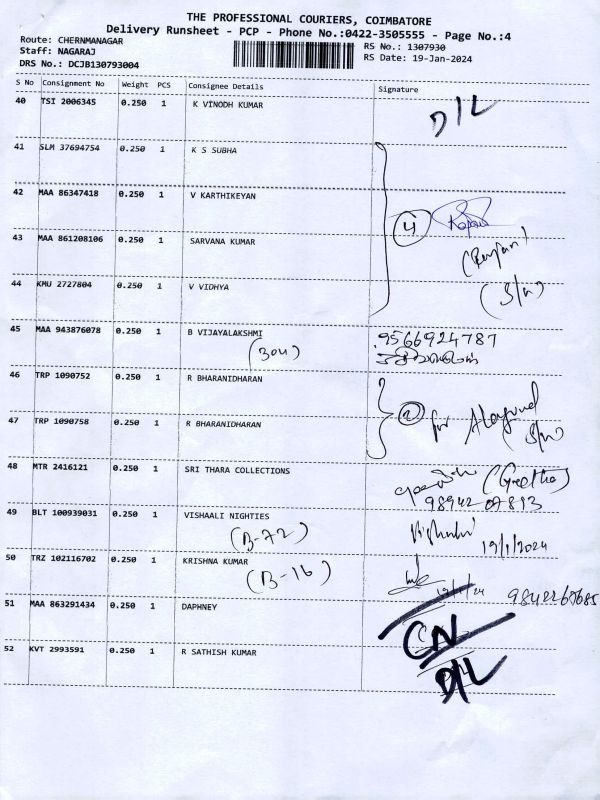 THE PROFESSIONAL COURIERS, COIMBATORE
Delivery Runsheet - PCP - Phone No.:0422-3505555 - Page No.:4
Route: CHERNMANAGAR
RS No.: 1307930
Staff: NAGARAJ
RS Date: 19-Jan-2024
DRS No.: DCJB130793004
S No Consignment No Weight PCS Consignee Details Signature
40 TSI 2006345 0.250 1 K VINODH KUMAR D/L
41 SLM 37694754 0.250 1 K S SUBHA
42 MAA 86347418 0.250 1 V KARTHIKEYAN 4
43 MAA 861208106 0.250 1 SARVANA KUMAR
44 KMU 2727804 0.250 1 V VIDHYA (S/w)
45 MAA 943876078 0.250 1 B VIJAYALAKSHMI 9566924787
(304)
46 TRP 1090752 0.250 1 R BHARANIDHARAN
2 for
47 TRP 1090758 0.250 1 R BHARANIDHARAN S/w
48 MTR 2416121 0.250 1 SRI THARA COLLECTIONS (Geetha)
98942 07813
49 BLT 100939031 0.250 1 VISHAALI NIGHTIES
(B-72) 19/1/2024
50 TRZ 102116702 0.250 1 KRISHNA KUMAR
(B-16) 19/1/24 9842267685
51 MAA 863291434 0.250 1 DAPHNEY CN
52 KVT 2993591 0.250 1 R SATHISH KUMAR D/L